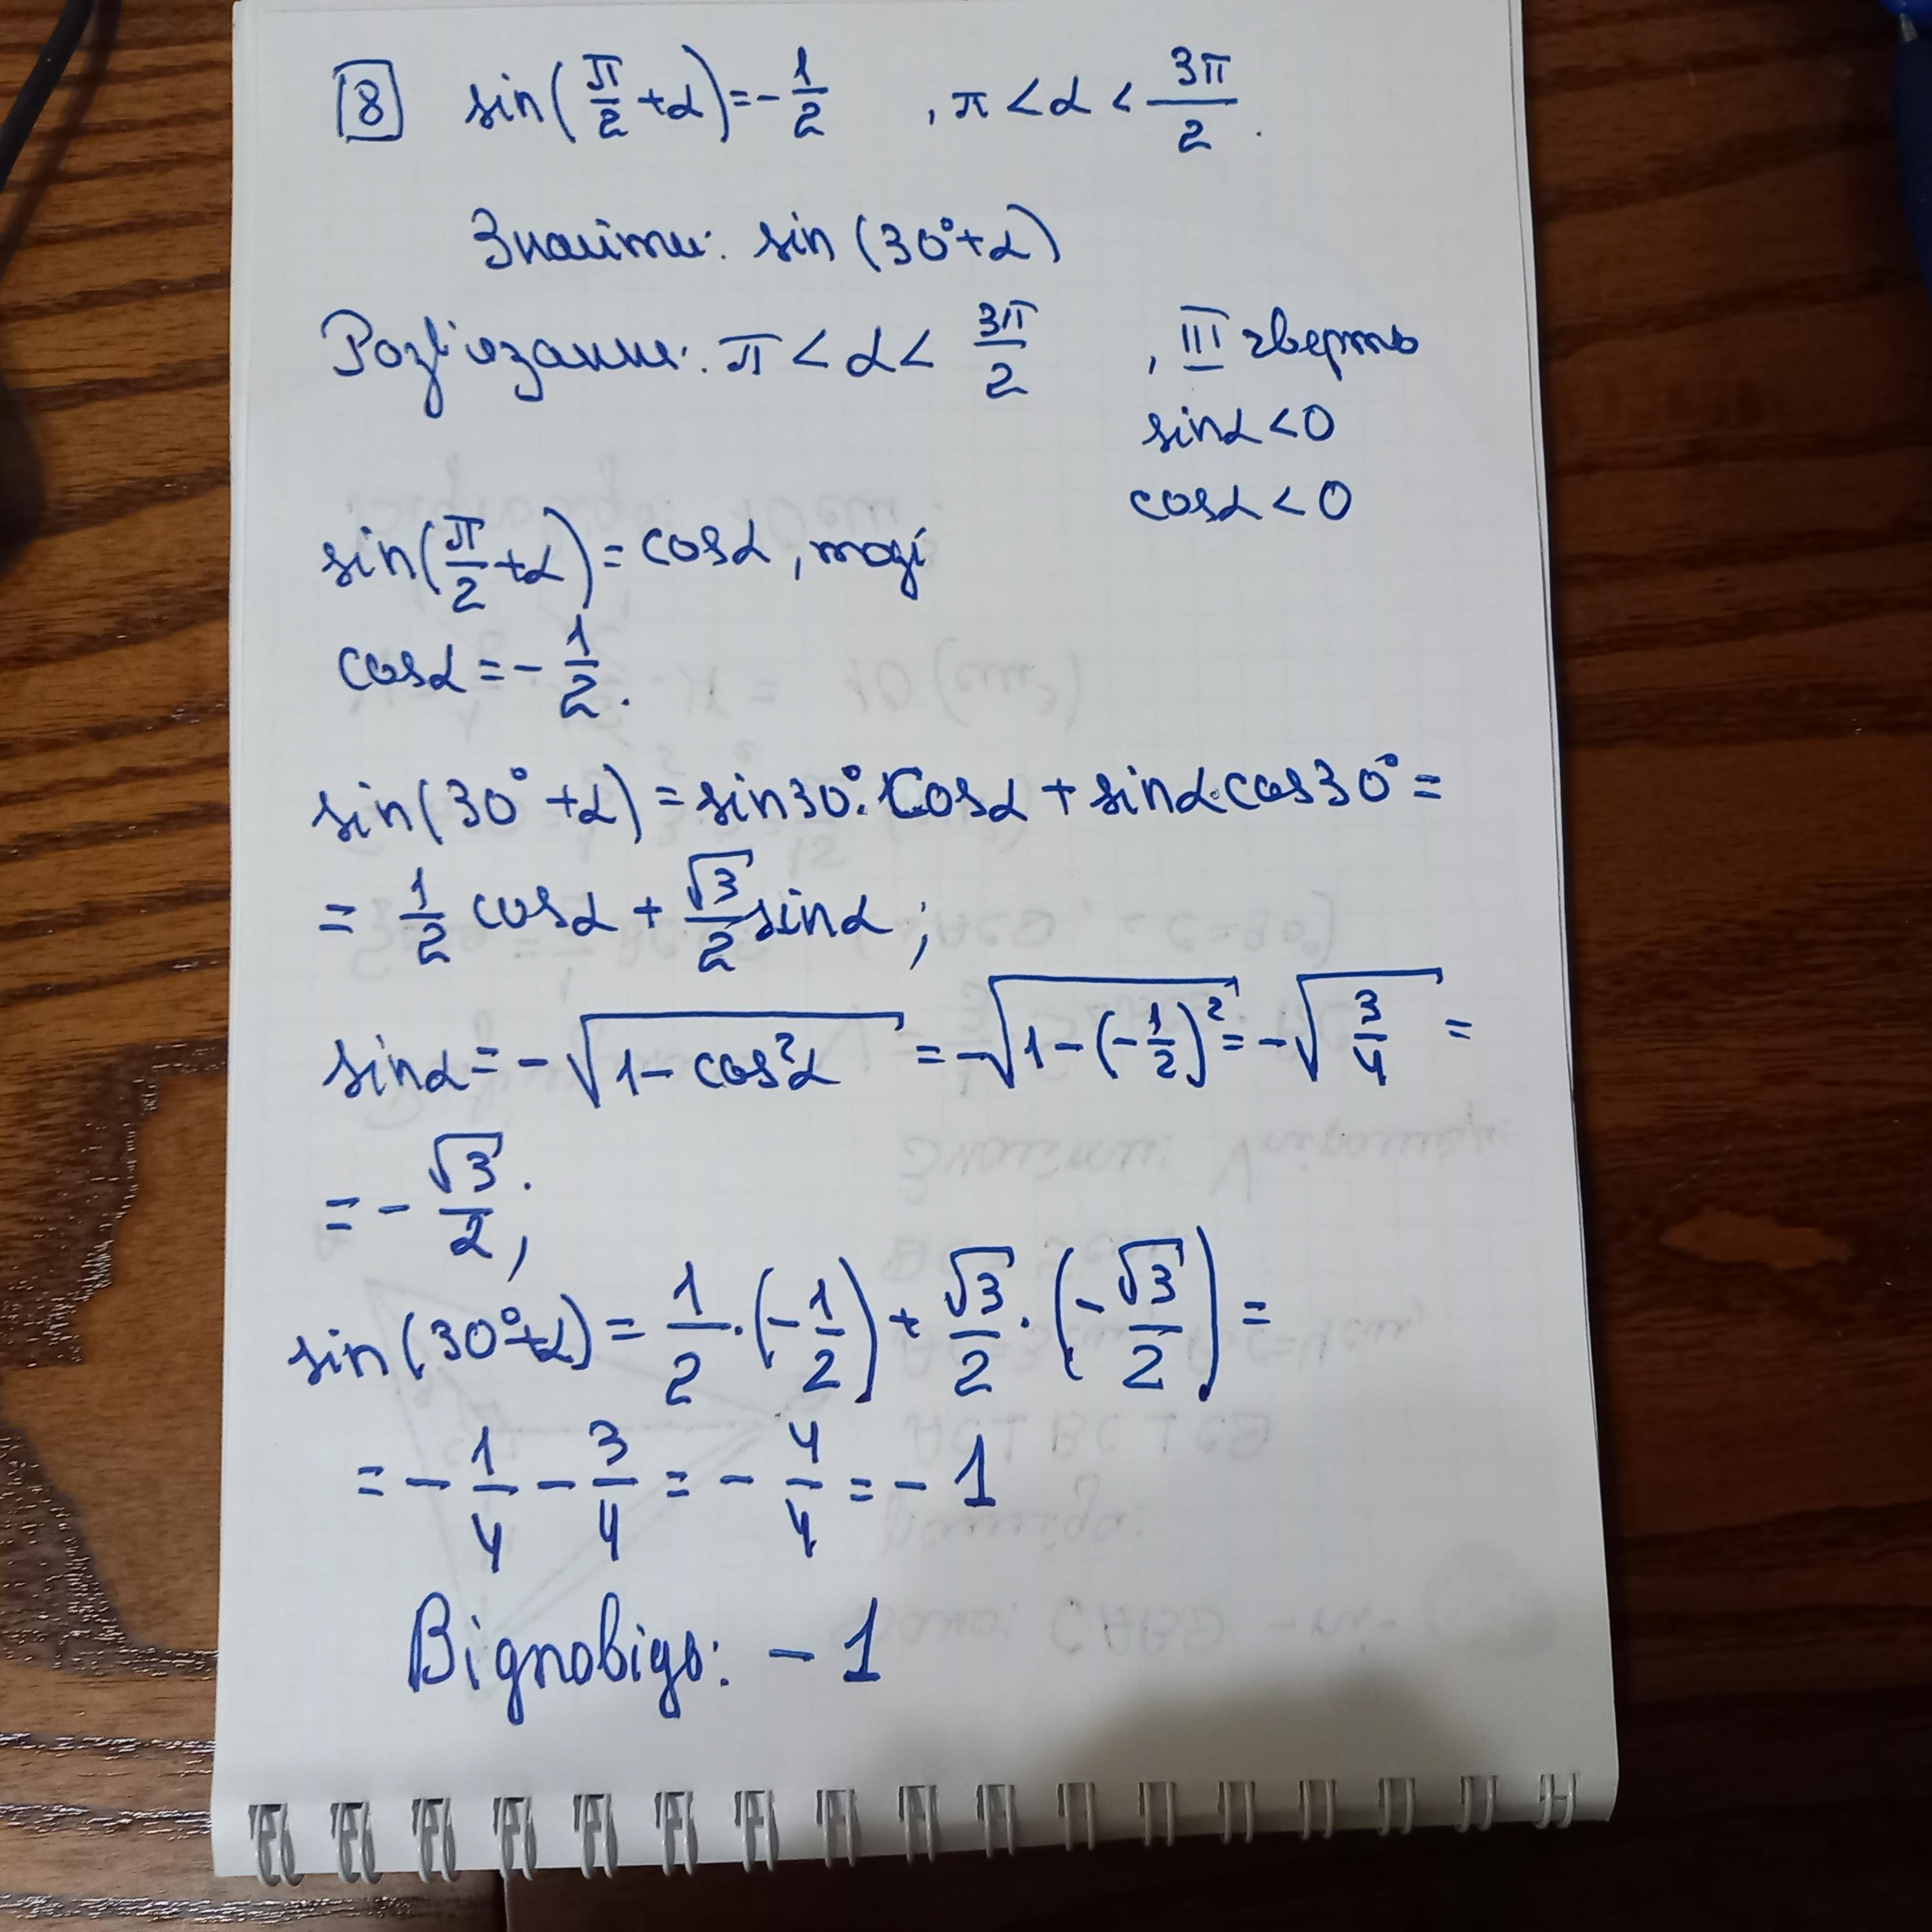 8 sin(π/2 + α) = -1/2 , π < α < 3π/2.
Знайти: sin (30° + α)
Розв'язання: π < α < 3π/2 , III чверть
sinα < 0
cosα < 0
sin(π/2 + α) = cosα, тоді
cosα = -1/2.
sin(30° + α) = sin30° · cosα + sinα · cos30° =
= 1/2 cosα + √3/2 sinα ;
sinα = -√(1 - cos²α) = -√(1 - (-1/2)²) = -√(3/4) =
= -√3/2 ;
sin(30° + α) = 1/2 · (-1/2) + √3/2 · (-√3/2) =
= -1/4 - 3/4 = -4/4 = -1
Відповідь: -1